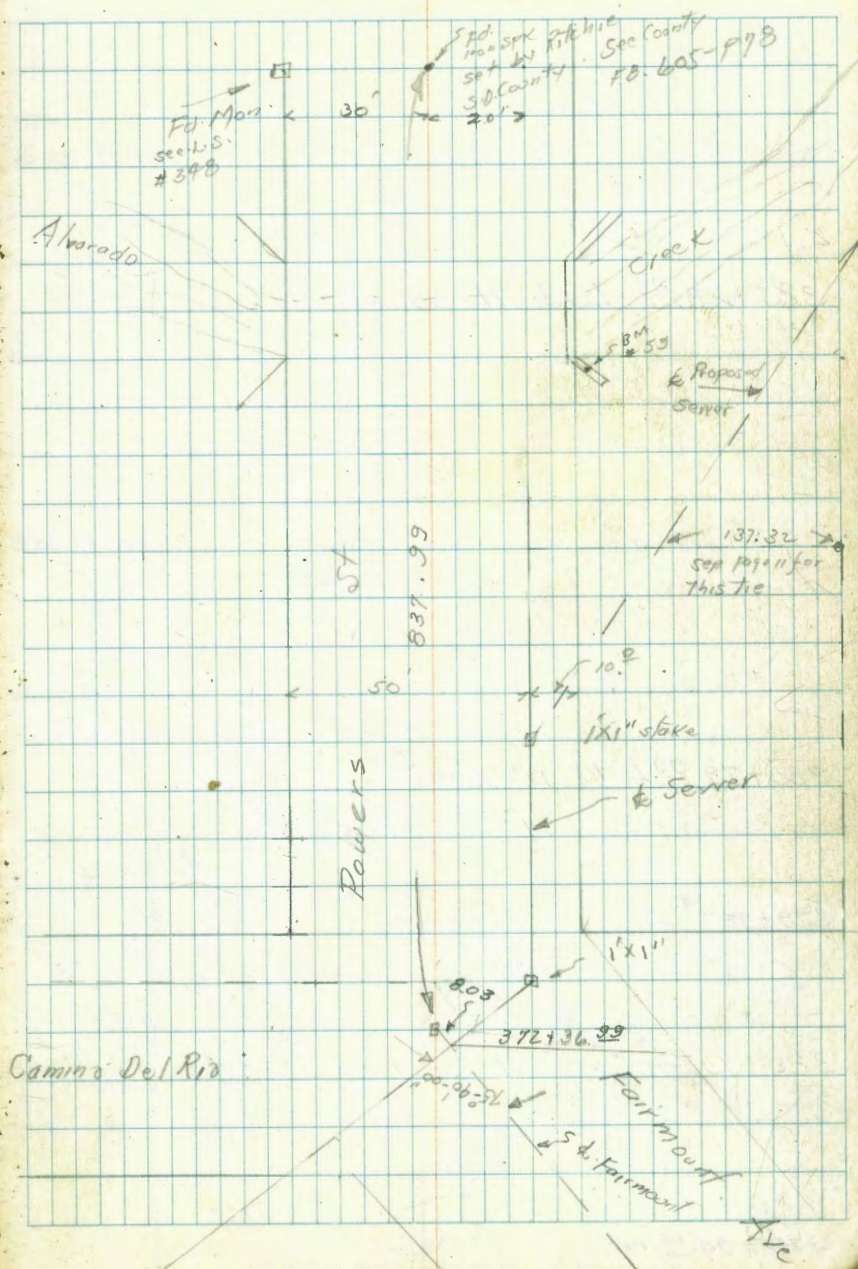 Fd.
iron spk Ritchie
set by
S.D. County See County
F.B. 605-P78
Fd. Mon.
see L.S.
#348
30'
20'
Alvarado
Creek
BM
#59
℄ Proposed
Sewer
137.32
see page 11 for
this tie
St
837.99
10.0
50'
1"x1" stake
℄ Sewer
Powers
1"x1"
8.03
372+36.99
Camino Del Rio
75°-40'-00"
℄ Fairmount
Fairmount
Ave